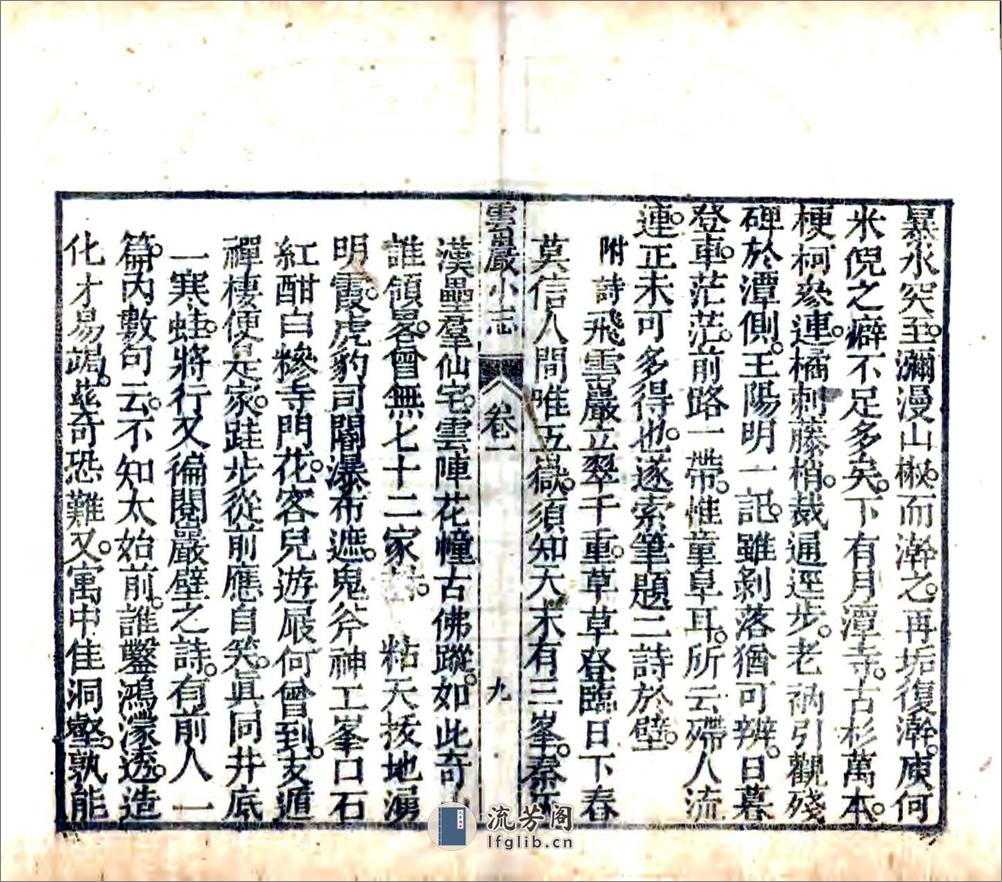 暴水突至。瀰漫山椒。而澣之。再垢復澣。庾何
米倪之癖不足多矣。下有月潭寺。古杉萬本。
梗柯𠫭連。橘刺藤梢。裁通逕步。老衲引觀殘
碑於潭側。王陽明一記。雖剝落猶可辨。日暮
登車。茫茫前路一帶。惟童阜耳。所云殢人流
連。正未可多得也。遂索筆題二詩於壁
附詩 飛雲巖立翠千重。草草登臨日下舂
莫信人間唯五嶽。須知天末有三峯。秦
漢壘羣仙宅。雲陣花幢古佛蹤。如此奇
誰領畧。曾無七十二家 粘天拔地湧
明霞。虎豹司閽瀑布遮。鬼斧神工峯口石
紅酣白糝寺門花。客兒遊屐何曾到。支遁
禪棲便是家。跬步從前應自笑。眞同井底
一寒蛙。將行又徧閱巖壁之詩。有前人一
篇。內數句云。不知太始前。誰鑿鴻濛透。造
化才易竭。茲奇恐難又。寓中佳洞壑。孰能
雲巖小志
卷一
九
流芳阁
lfglib.cn